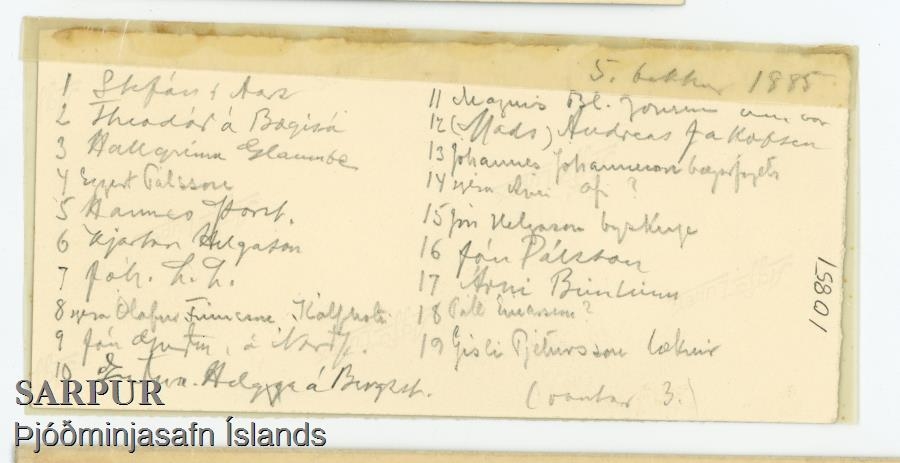 5. bekkur 1885
1 Stefán í Aars
2 Theodór á Bægisá
3 Hallgrímur Glaumbæ
4 Eggert Pálsson
5 Hannes Þorst.
6 Kjartan Helgason
7 Jóh. L. L.
8 séra Ólafur Finnsson Kálfholti
9 Jón Guðm. á Norðf.
10 Helgason á Bergst.
11 Magnús Bl. Jónsson
12 (Mads) Andreas Jakobsen
13 Jóhannes Jóhannesson bæjarfógeti
14 séra Árni ?
15 Jón Helgason byskup
16 Jón Pálsson
17 Árni
18 Páll Einarsson?
19 Gísli Pjetursson læknir
(vantar 3.)
15801
SARPUR
Þjóðminjasafn Íslands